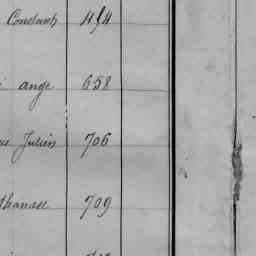 Constant 414
ange 658
Julien 706
thanase 709